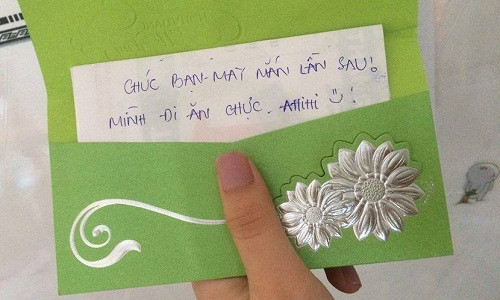 CHÚC BẠN MAY MẮN LẦN SAU!
MÌNH ĐI ĂN CHỰC. AHIHI !